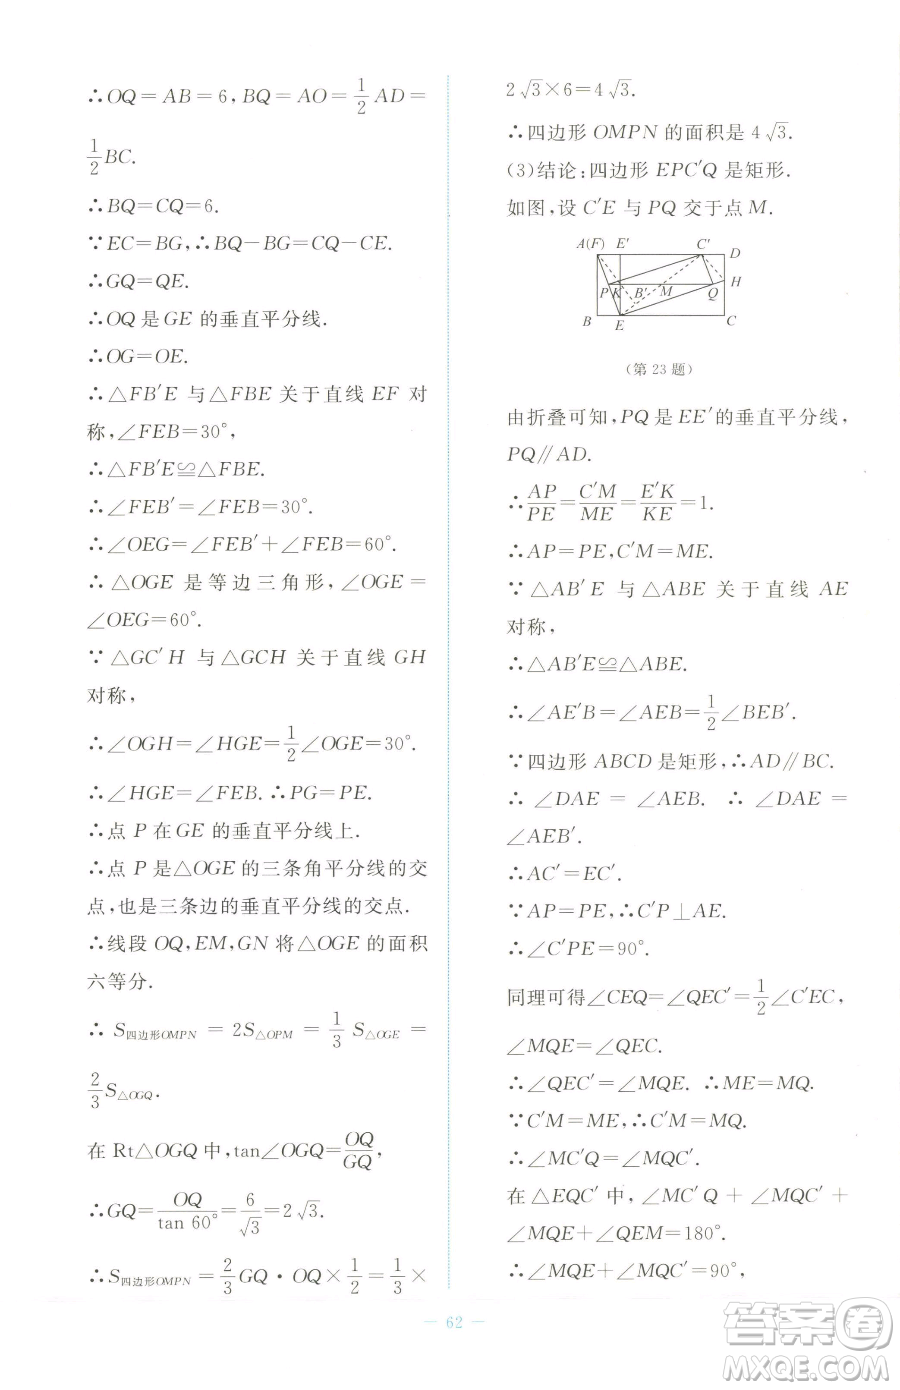 ∴OQ=AB=6,BQ=AO=1/2 AD=
1/2 BC.
∴BQ=CQ=6.
∵EC=BG,∴BQ-BG=CQ-CE.
∴GQ=QE.
∴OQ 是 GE 的垂直平分线.
∴OG=OE.
∴△FB′E 与△FBE 关于直线 EF 对
称,∠FEB=30°,
∴△FB′E≌△FBE.
∴∠FEB′=∠FEB=30°.
∴∠OEG=∠FEB′+∠FEB=60°.
∴△OGE 是等边三角形,∠OGE=
∠OEG=60°.
∵△GC′H 与△GCH 关于直线 GH
对称,
∴∠OGH=∠HGE=1/2∠OGE=30°.
∴∠HGE=∠FEB.∴PG=PE.
∴点 P 在 GE 的垂直平分线上.
∴点 P 是△OGE 的三条角平分线的交
点,也是三条边的垂直平分线的交点.
∴线段 OQ,EM,GN 将△OGE 的面积
六等分.
∴S四边形OMPN=2S△OPM=1/3 S△OGE=
2/3 S△OGQ.
在 Rt△OGQ 中,tan∠OGQ=OQ/GQ,
∴GQ=OQ/tan 60°=6/√3=2√3.
∴S四边形OMPN=2/3 GQ·OQ×1/2=1/3×
2√3×6=4√3.
∴四边形 OMPN 的面积是 4√3.
(3)结论:四边形 EPC′Q 是矩形.
如图,设 C′E 与 PQ 交于点 M.
A(F) E′ C′ D
H
P K B′ M Q
B E C
(第 23 题)
由折叠可知,PQ 是 EE′的垂直平分线,
PQ∥AD.
∴AP/PE=C′M/ME=E′K/KE=1.
∴AP=PE,C′M=ME.
∵△AB′E 与△ABE 关于直线 AE
对称,
∴△AB′E≌△ABE.
∴∠AE′B=∠AEB=1/2∠BEB′.
∵四边形 ABCD 是矩形,∴AD∥BC.
∴∠DAE=∠AEB.∴∠DAE=
∠AEB′.
∴AC′=EC′.
∵AP=PE,∴C′P⊥AE.
∴∠C′PE=90°.
同理可得∠CEQ=∠QEC′=1/2∠C′EC,
∠MQE=∠QEC.
∴∠QEC′=∠MQE.∴ME=MQ.
∵C′M=ME,∴C′M=MQ.
∴∠MC′Q=∠MQC′.
在△EQC′中,∠MC′Q+∠MQC′+
∠MQE+∠QEM=180°.
∴∠MQE+∠MQC′=90°,
— 62 —
答案圈
MXQE.COM